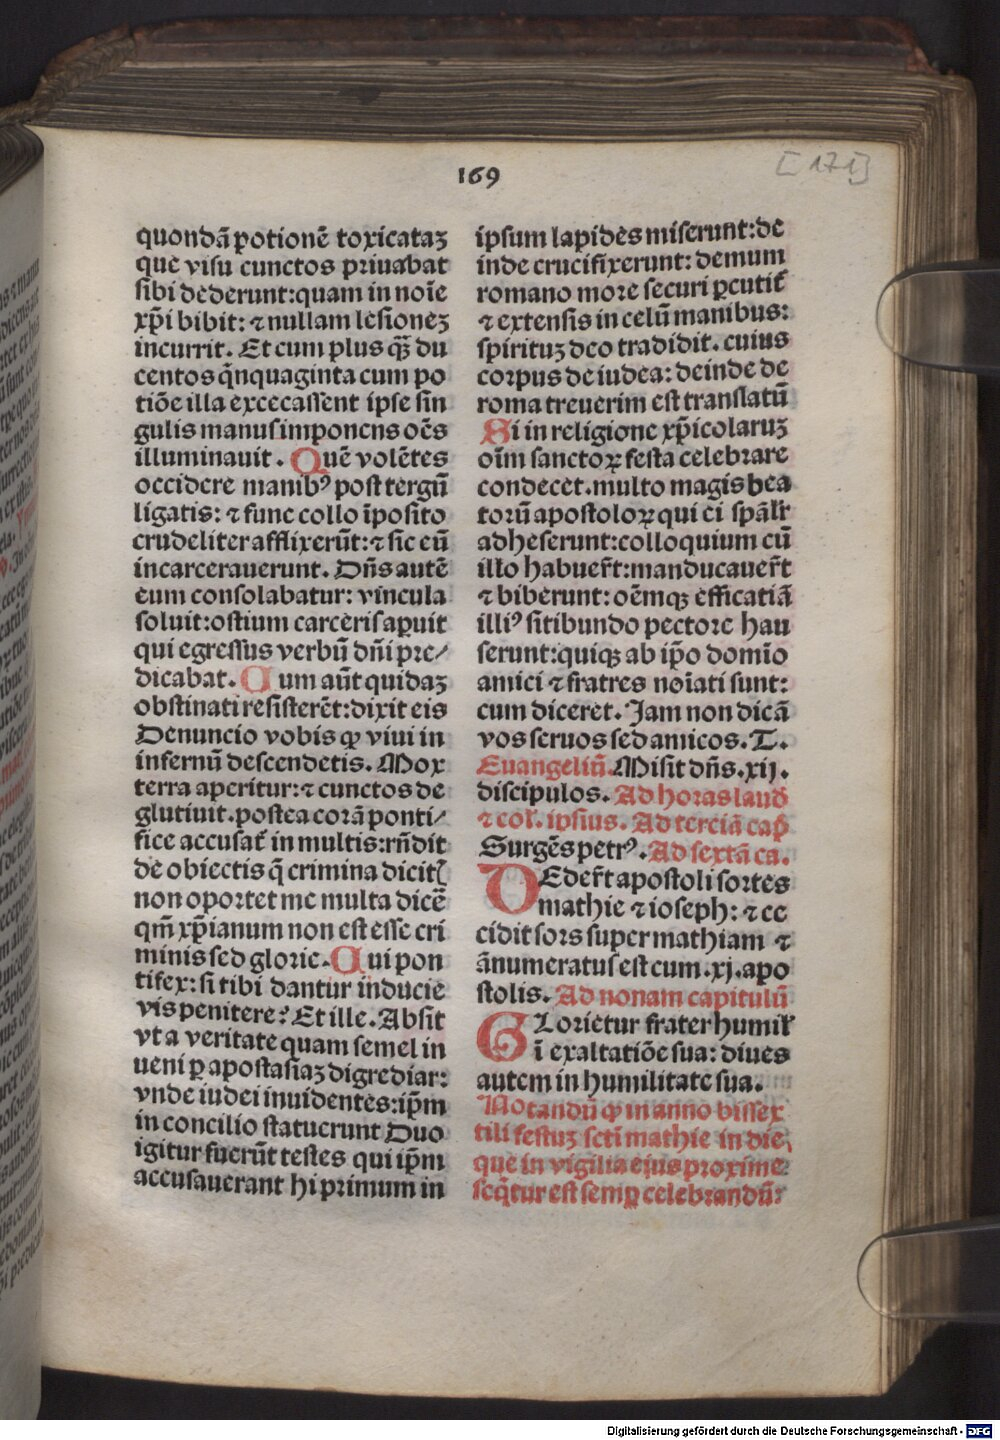 169
[171]
quondã potionẽ toxicataꝫ
que visu cunctos priuabat
sibi dederunt:quam in noīe
xp̄i bibit: ⁊ nullam lesioneꝫ
incurrit. Et cum plus qꝫ̃ du
centos qͥnquaginta cum po
tiōe illa excecassent ipse sin
gulis manus imponens oēs
illuminauit. Quē volētes
occidere manibꝰ post tergū
ligatis: ⁊ fune collo īposito
crudeliter afflixerūt:⁊ sic eū
incarcerauerunt. Dn̄s autē
eum consolabatur: vincula
soluit:ostium carceris aꝑuit
qui egressus verbū dn̄i pre⸗
dicabat. Cum aūt quidaꝫ
obstinati resisterēt:dixit eis
Denuncio vobis ꝙ viui in
infernū descendetis. Mox
terra aperitur:⁊ cunctos de
glutiuit.postea corā ponti⸗
fice accusat᷑ in multis:rn̄dit
de obiectis q̄ crimina dicit᷑
non oportet me multa dicē
qm̄ xp̄ianum non est esse cri
minis sed glorie. Cui pon
tifex: si tibi dantur inducie
vis penitere? Et ille. Absit
vt a veritate quam semel in
ueni ꝑ apostasiaꝫ digrediar:
vnde iudei inuidentes:ip̄m
in concilio statuerunt Duo
igitur fuerūt testes qui ip̄m
accusauerant hi primum in
ipsum lapides miserunt:de
inde crucifixerunt: demum
romano more securi ꝑcutit᷑
⁊ extensis in celū manibus:
spirituꝫ deo tradidit. cuius
corpus de iudea: deinde de
roma treuerim est translatū
Si in religione xp̄icolaruꝫ
oīm sanctoꝝ festa celebrare
condecet.multo magis bea
torū apostoloꝝ qui ei spāl᷑r
adheserunt:colloquium cū
illo habuer̄t:manducauer̄t
⁊ biberunt: oēmqꝫ efficatiā
illiꝰ sitibundo pectore hau
serunt:quiqꝫ ab ip̄o domīo
amici ⁊ fratres noīati sunt:
cum diceret. Jam non dicā
vos seruos sed amicos. T.
Euangeliū. Misit dn̄s.xij.
discipulos. Ad horas laud᷑
⁊ col᷑. ipsius. Ad terciā cap̄
Surgēs petrꝰ. Ad sextā ca.
DEder̄t apostoli sortes
mathie ⁊ ioseph: ⁊ ce
cidit sors super mathiam ⁊
ānumeratus est cum .xj. apo
stolis. Ad nonam capitulū
GLorietur frater humil᷑
ī exaltatiōe sua: diues
autem in humilitate sua.
Notandū ꝙ in anno bissex
tili festuꝫ sctī mathie in die,
que in vigilia eius proxime
seq̄tur est semꝑ celebrandū:
Digitalisierung gefördert durch die Deutsche Forschungsgemeinschaft - DFG